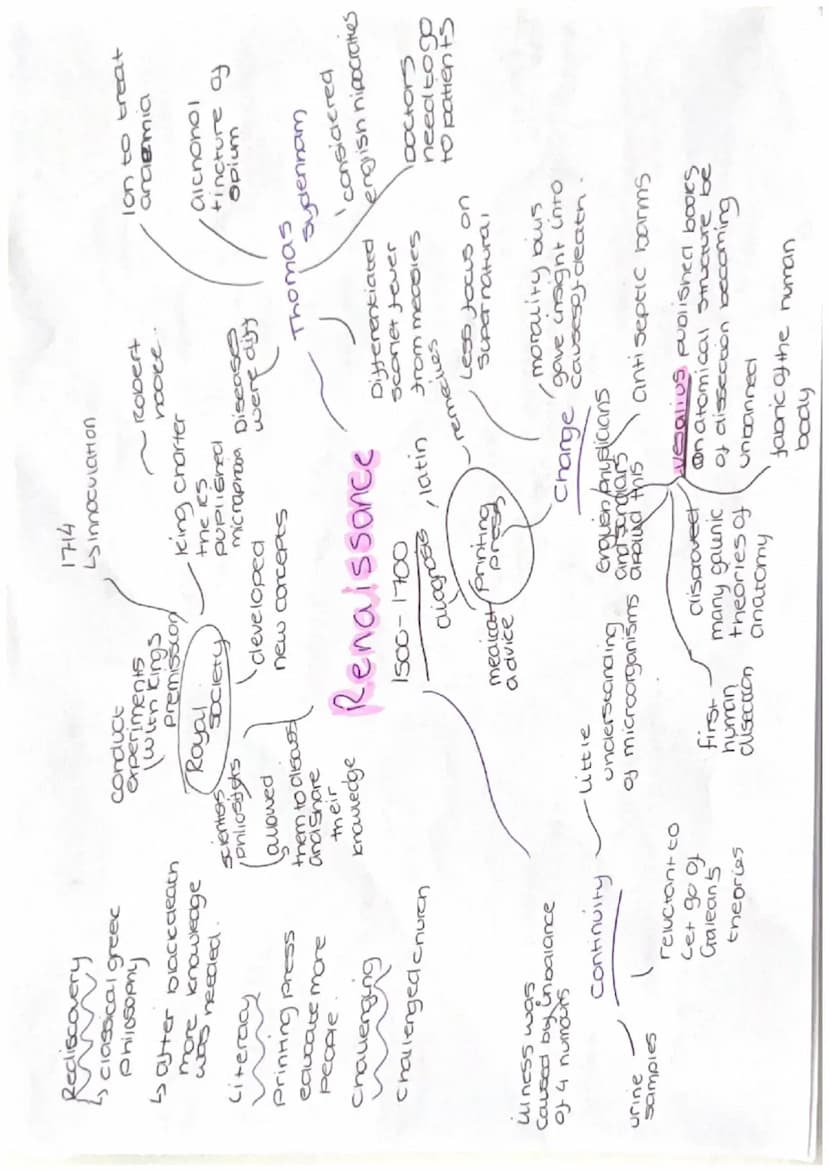 Rediscovery
↳ classical greec
philosophy
↳ after blackdeath
more knowledge
was needed.
Literacy
printing press
educate more
people.
Challenging
Challenged church
conduct
experiments
with kings
premission
Royal
society
1714
↳ innoculation
Robert
hooke
king charter
the RS
pupilished
scientists
allowed
them to discuss
and share
their
knowledge
developed
new concepts
Renaissance
1500-1700
Thomas
sydenham
Ion to treat
alchohol
tincture of
opium
considered
english hipocraties
Doctors
need to go
to patients
Diseases
were diff
Differentiated
scarlet fever
from measles
Printing
press
diagnosis
latin
remedies
medical
advice
Change
Less focus on
supernatural
morality bills
gave insight into
causes of death.
english physicians
and scholars
applied this
anti septic balms
vesalius published books
on anatomical structure be
of dissection becoming
unbanned
fabric of the human
body
disproved
many galenic
theories of
anatomy
first
human
disection
Illness was
caused by inbalance
of 4 humours
Continuity
little
understanding
of microorganisms
reluctant to
Let go of
Galean's
theories
urine
samples